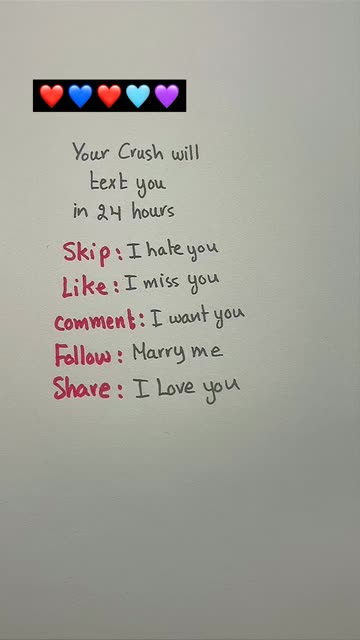 ❤️💙❤️🩵💜
Your Crush will
text you
in 24 hours
Skip: I hate you
Like: I miss you
comment: I want you
Follow: Marry me
Share: I Love you